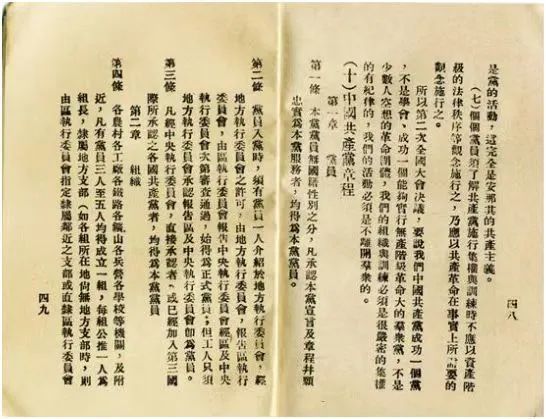 是黨的活動，這完全是安那其的共產主義。
（七）個個黨員須了解共產黨施行集權與訓練時不應以資產階
級的法律秩序等觀念施行之，乃應以共產革命在事實上所需要的
觀念施行之。
所以第二次全國大會決議，要說我們中國共產黨成功一個黨
，不是學會，成功一個能夠實行無產階級革命大的羣衆黨，不是
少數人空想的革命團體，我們的組織與訓練必須是很嚴密的集權
的有紀律的，我們的活動必須是不離開羣衆的。
（十）中國共產黨章程
第一章　黨員
第一條　本黨黨員無國籍性別之分，凡承認本黨宣言及章程幷願
忠實爲本黨服務者，均得爲本黨黨員。
四八
第二條　黨員入黨時，須有黨員一人介紹於地方執行委員會，經
地方執行委員會之許可，由地方執行委員會，報告區執行
委員會，由區執行委員會報告中央執行委員會經區及中央
執行委員會次第審査通過，始得爲正式黨員；但工人只須
地方執行委員會承認報告區及中央執行委員會卽爲黨員。
第三條　凡經中央執行委員會，直接承認者，或已經加入第三國
際所承認之各國共產黨者，均得爲本黨黨員
第二章　組織
第四條　各農村各工廠各鐵路各鑛山各兵營各學校等機關，及附
近，凡有黨員三人至五人均得成立一組，每組公推一人爲
組長，隸屬地方支部（如各組所在地尙無地方支部時，則
由區執行委員會指定隸屬鄰近之支部或直隸區執行委員會
四九